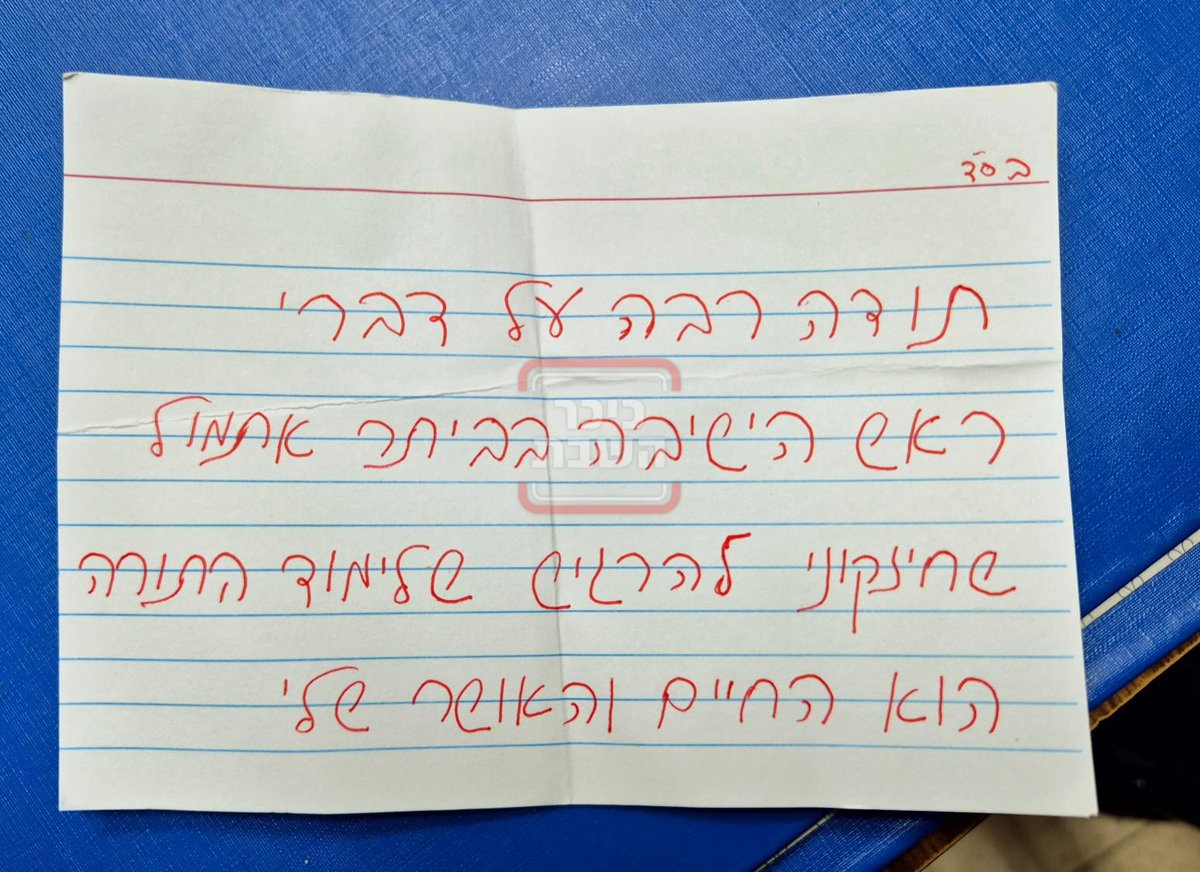 בס"ד
תודה רבה על דברי
ראש הישיבה בביתר אתמול
שחיזקוני להרגיש שלימוד התורה
הוא החיים והאושר שלי
כיכר
השבת